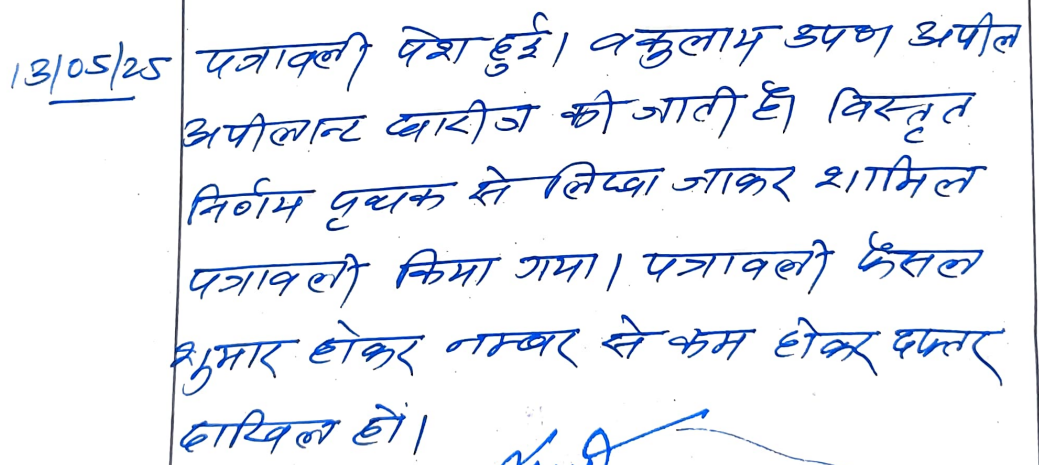 13/05/25 पत्रावली पेश हुई। वकुलाय उपण अपील
अपीलान्ट खारीज की जाती है। विस्तृत
निर्णय पृथक से लिखा जाकर शामिल
पत्रावली किया गया। पत्रावली फैसल
शुमार होकर नम्बर से कम होकर दफ्तर
दाखिल हों।